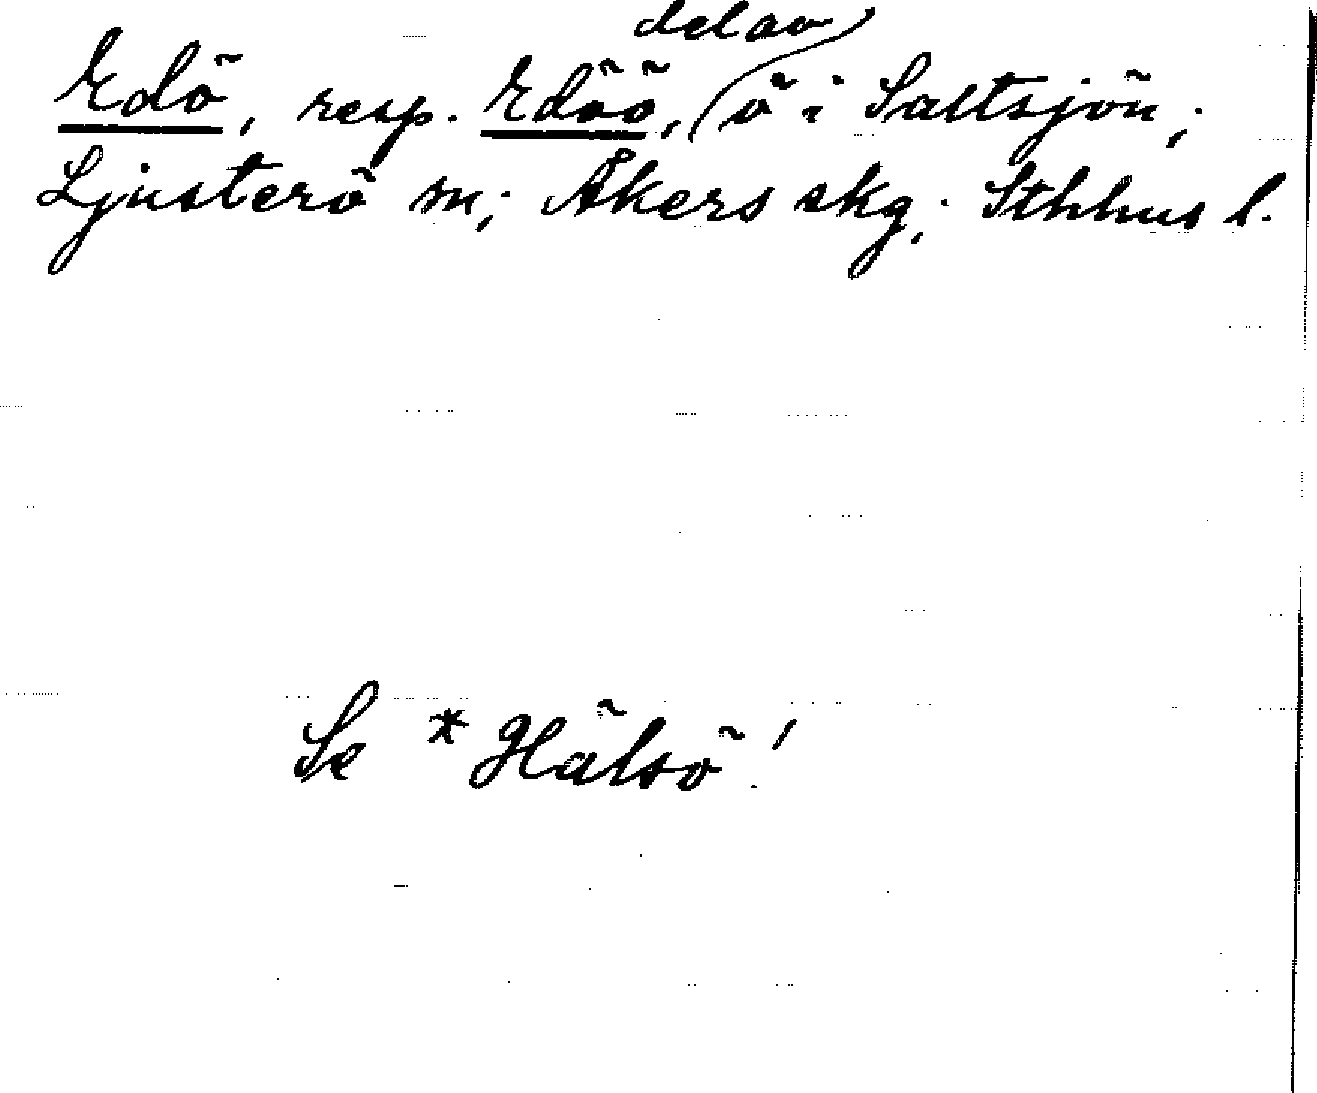 del av
Edö, resp. Edöö, ö i Saltsjön;
Ljusterö sn; Åkers skg; Sthlms l.
Se *Hälsö!